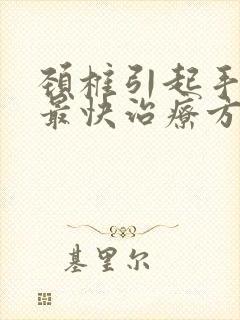 颈椎引起手
最快治疗方
基里尔